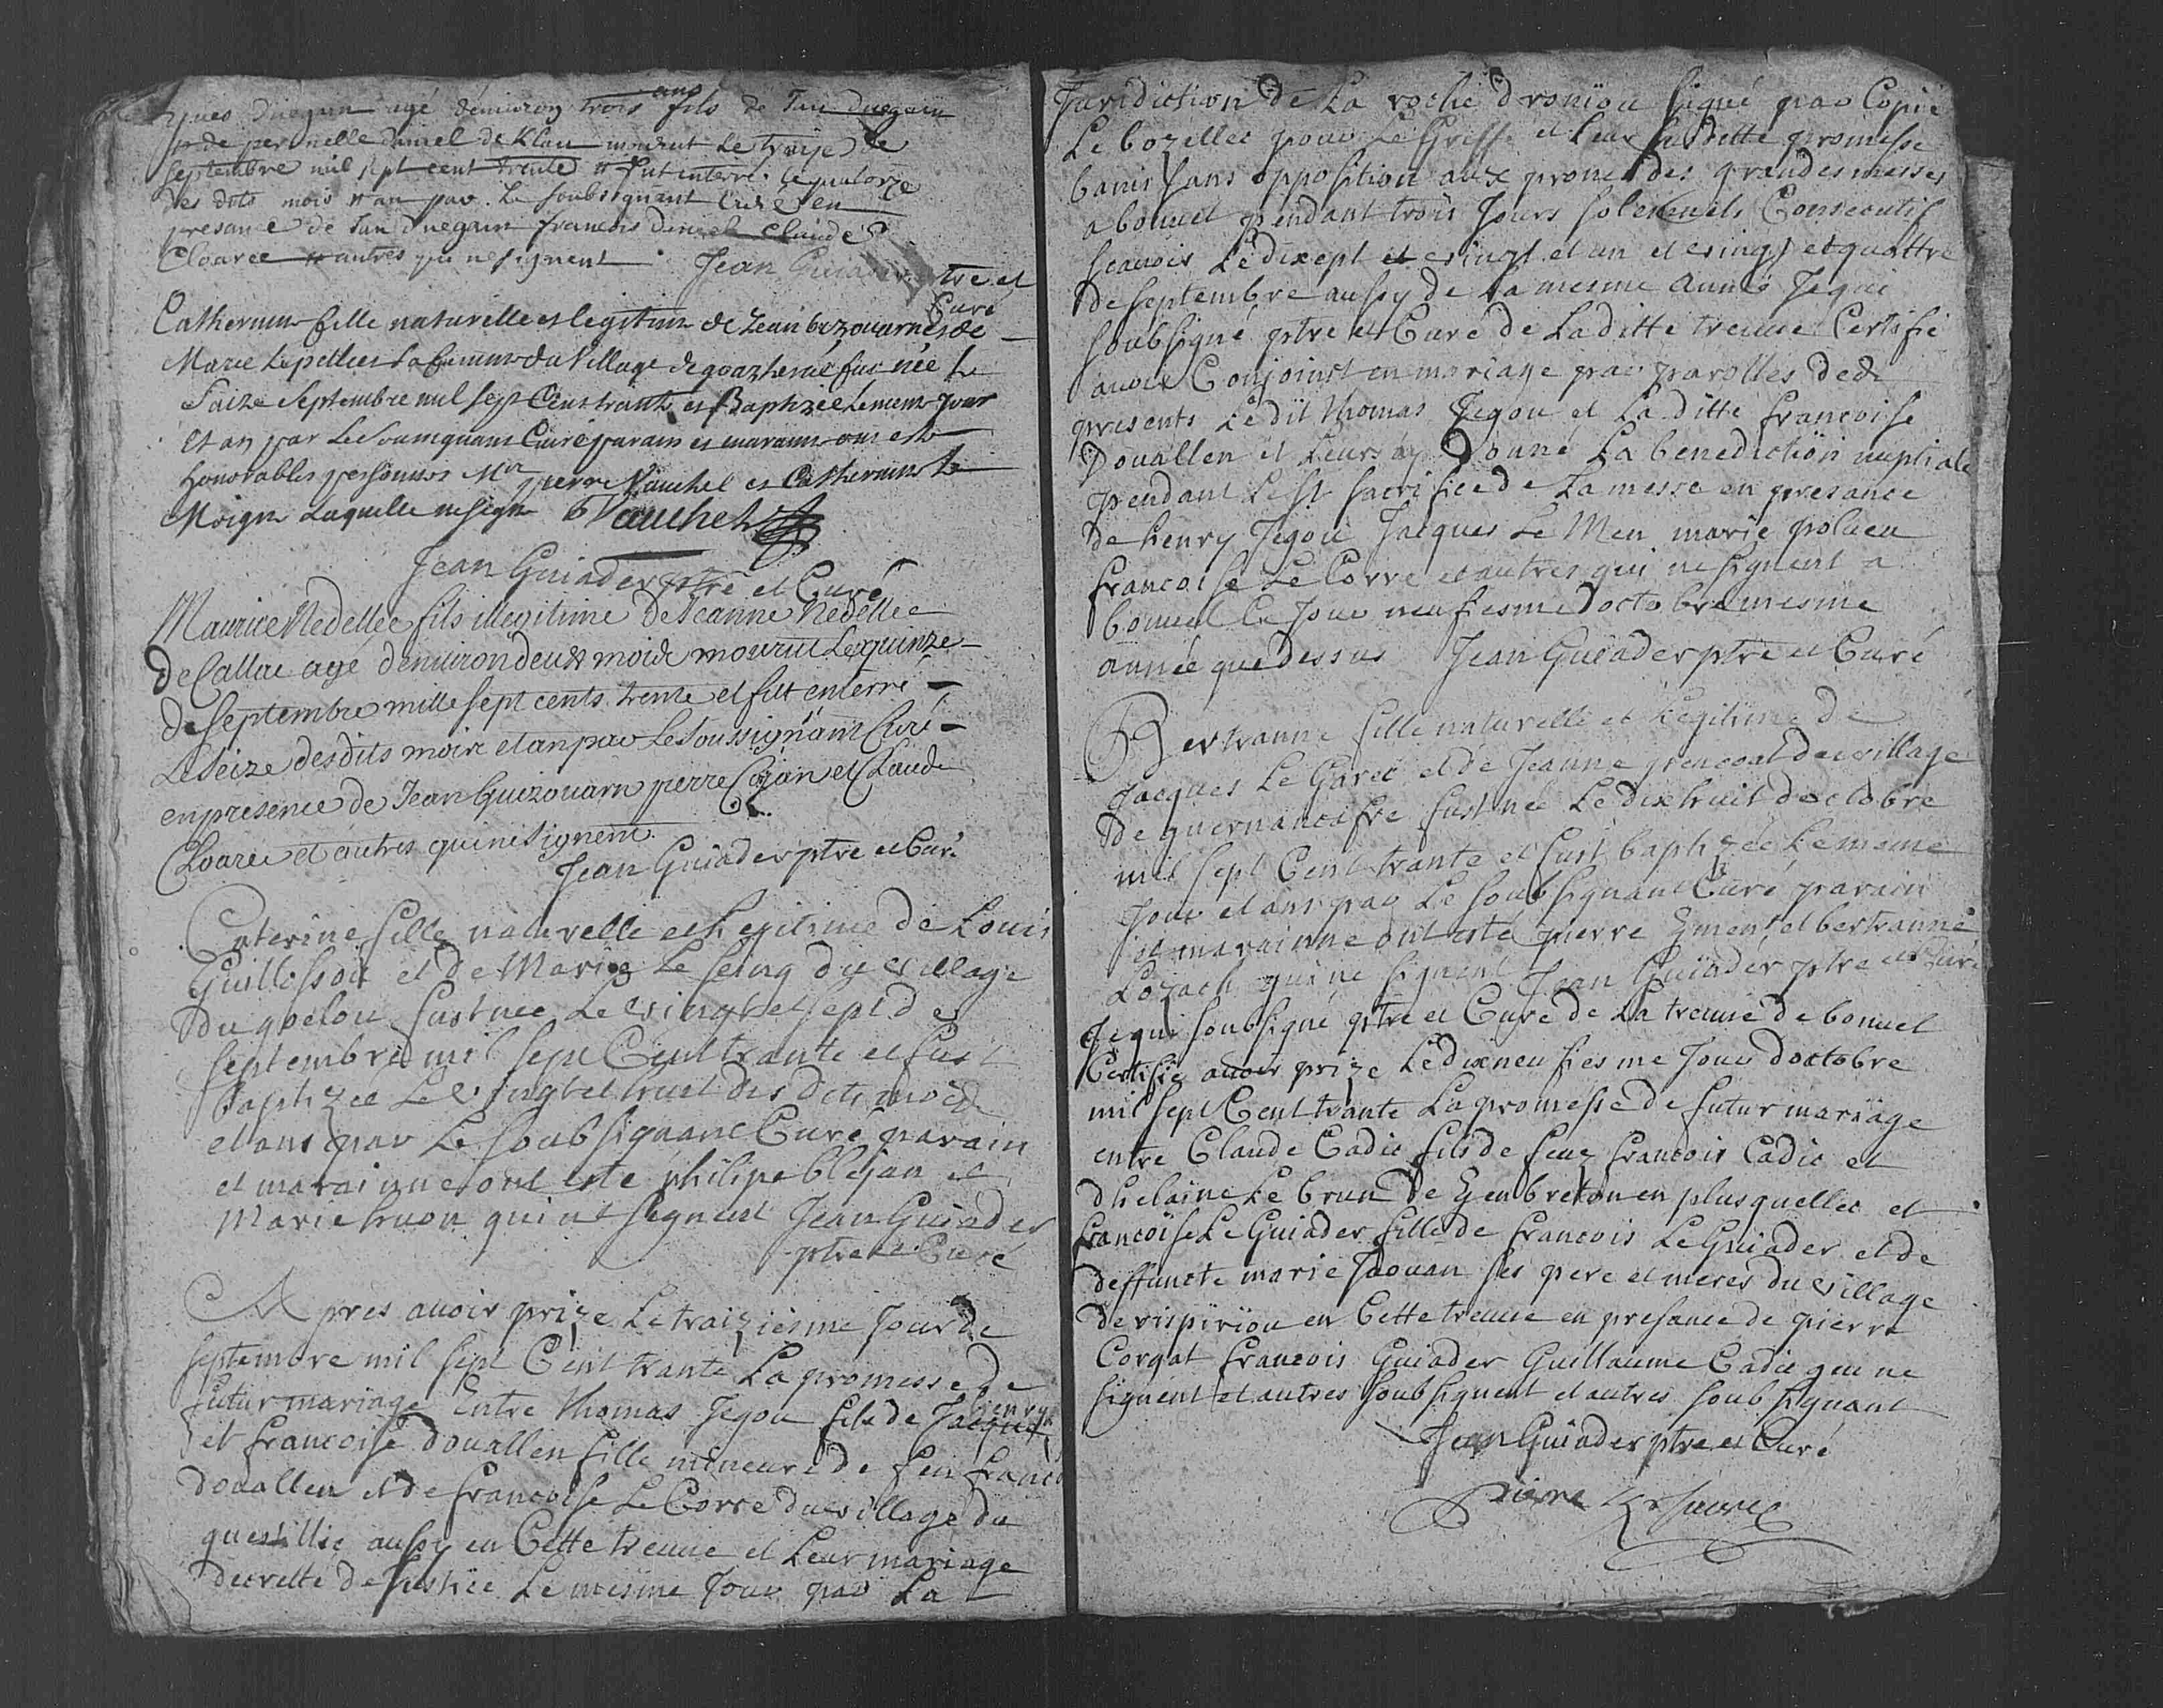 yves duegain agé denviron trois ans fils de Jan duegain
p de peronelle daniel de Klau mourut le treize de
septembre mil sept cent trente et fut interré le quatorze
des dits mois et an par le soubsignant curé en
presance de Jan duegain francois daniel claude
Cloarec et autres qui ne signent Jean Guiader ptre et
Curé
Catherinne fille naturelle et legitime de Jean bizouarnes de
Marie Lepellec sa femme du Village de goazheräé fut née le
Saize Septembre mil sept Cens trante et Baptizée le meme jour
et an par Le Soussignant Curé parain et maraine ont esté
honorables personnes Mre pierre Vauchel et Catherinne Le
Moigne Laquelle ne signe PVauchel
Jean Guiader ptre et Curé
Maurice Nedellec fils illegitime de Jeanne Nedellec
de Callac agé denviron deux moix mourut Le quinze
de septembre mille sept cents trente et fut enterré
Le Seize desdits moix et an par Le Soussignant Curé
en presence de Jean Guizouarn pierre Cojan et Claude
Cloarec et autres qui ne Signent.
Jean Guiader ptre et Curé
Caterine fille naturelle et Legitime de Louis
Guillossou et de Marie Le seing du village
du goelou fust née Le vingt et sept de
septembre mil sept Cent trante et fust
baptizée Le vingt et huit des dits moix
et ans par Le soubsignant Curé parain
et marainne ont esté philipe blejan et
Marie huon qui ne signent Jean Guiader
ptre et Curé
Apres avoir prize Le traiziesme Jour de
septembre mil sept Cent trante La promesse de
futur mariage Entre Thomas Jegou fils de Jacques henry
et francoise douallen fille mineure de feu francois
douallen et de francoise Le Corre du village du
questillic aussy en Cette treuve et Leur mariage
decretté de Justice Le mesme Jour par La
Juridiction de La roche dronïou signé par Copie
Le bozellec pour Le Griffe et Leur susditte promesse
banis sans opposition aux prone des grandes messes
a bonuel pendant trois Jours solemnels Consecutif
scavoir Le dixsept et vingt et un et vingt et quattre
de septembre aussy de La mesme année Je qui
soubsigné ptre et Curé de Laditte treuve Certifi
avoir Conjoinst en mariage par parolles dede
presents Ledit thomas Jegou et La ditte francoise
Douallen et Leurs ay Donné La benediction nuptiale
pendant Le St sacrifice de La messe en presance
de henry Jegou Jacques Le Men marie poluen
francoise Le Corre et autres qui ne signent a
bonuel Le Jour neufiesme doctobre mesme
année que dessus Jean Guiader ptre et Curé
Bertranne fille naturelle et Legitime de
Jacques Le Garec et de Jeanne prencoat du village
de guernancastre fust née Le dixhuit doctobre
mil sept Cent trante et fust baptizée Le mesme
Jour et ans par Le soubsignant Curé parain
et marainne ont esté pierre Yment et bertranne
Lozach qui ne signent Jean Guiader ptre et Curé
Je qui soubsigné ptre et Curé de La treuve de bonuel
Certifie avoir prize Le dixneufiesme Jour doctobre
mil sept Cent trante La promesse de futur mariage
entre Claude Cadic fils de feuz francois Cadic et
dhelaine Le brun de Genbreton en plusquellec et
francoise Le Guiader fille de francois Le Guiader et de
deffuncte marie Jaouan ses pere et meres du village
de rispiriou en Cette treuve en presance de pierre
Corgat francois Guiader Guillaume Cadic qui ne
signent et autres soubsignent et autres soubsignant
Jean Guiader ptre et Curé
Pierre